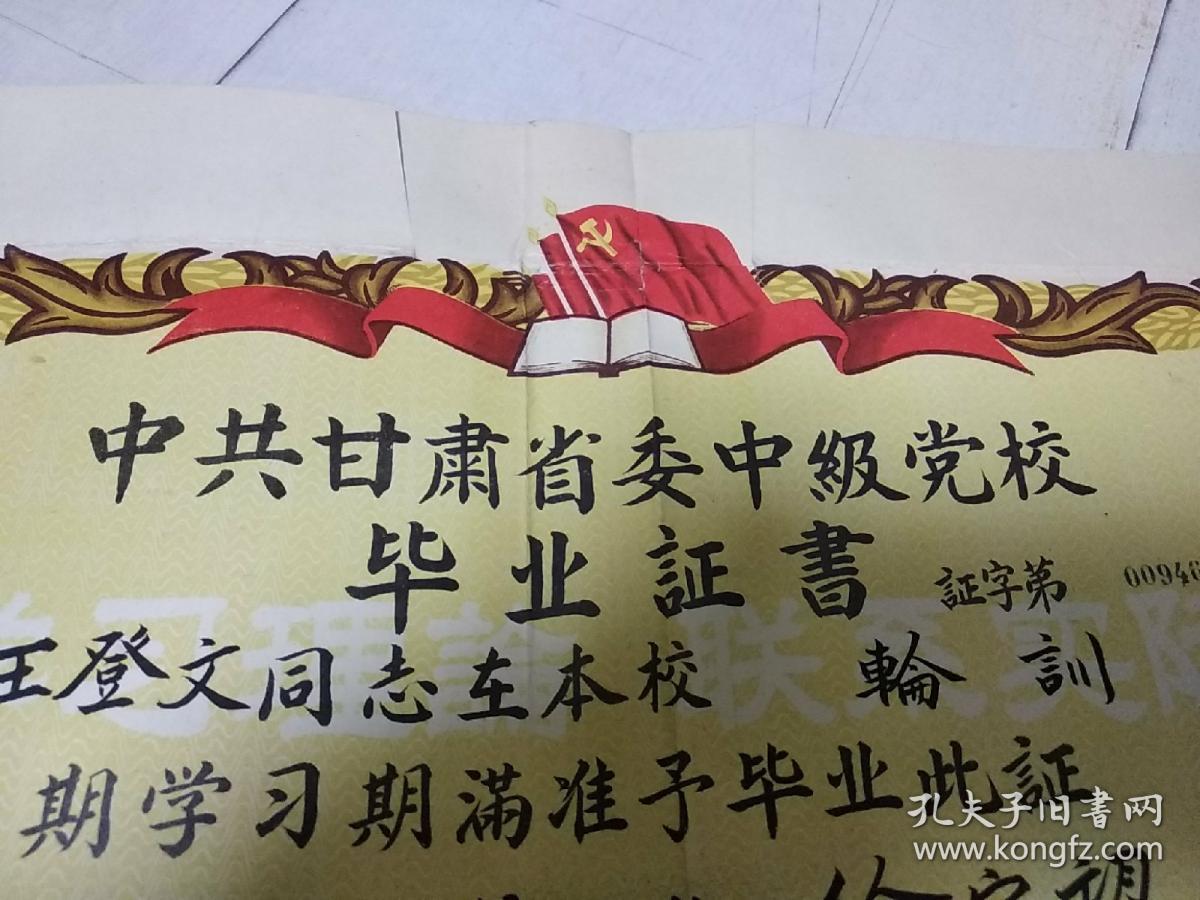 中共甘肅省委中級党校
毕业証書
証字第 00946
王登文同志在本校 輪訓
期学习期滿准予毕业此証
理論 联系实际
孔夫子旧書网
www.kongfz.com